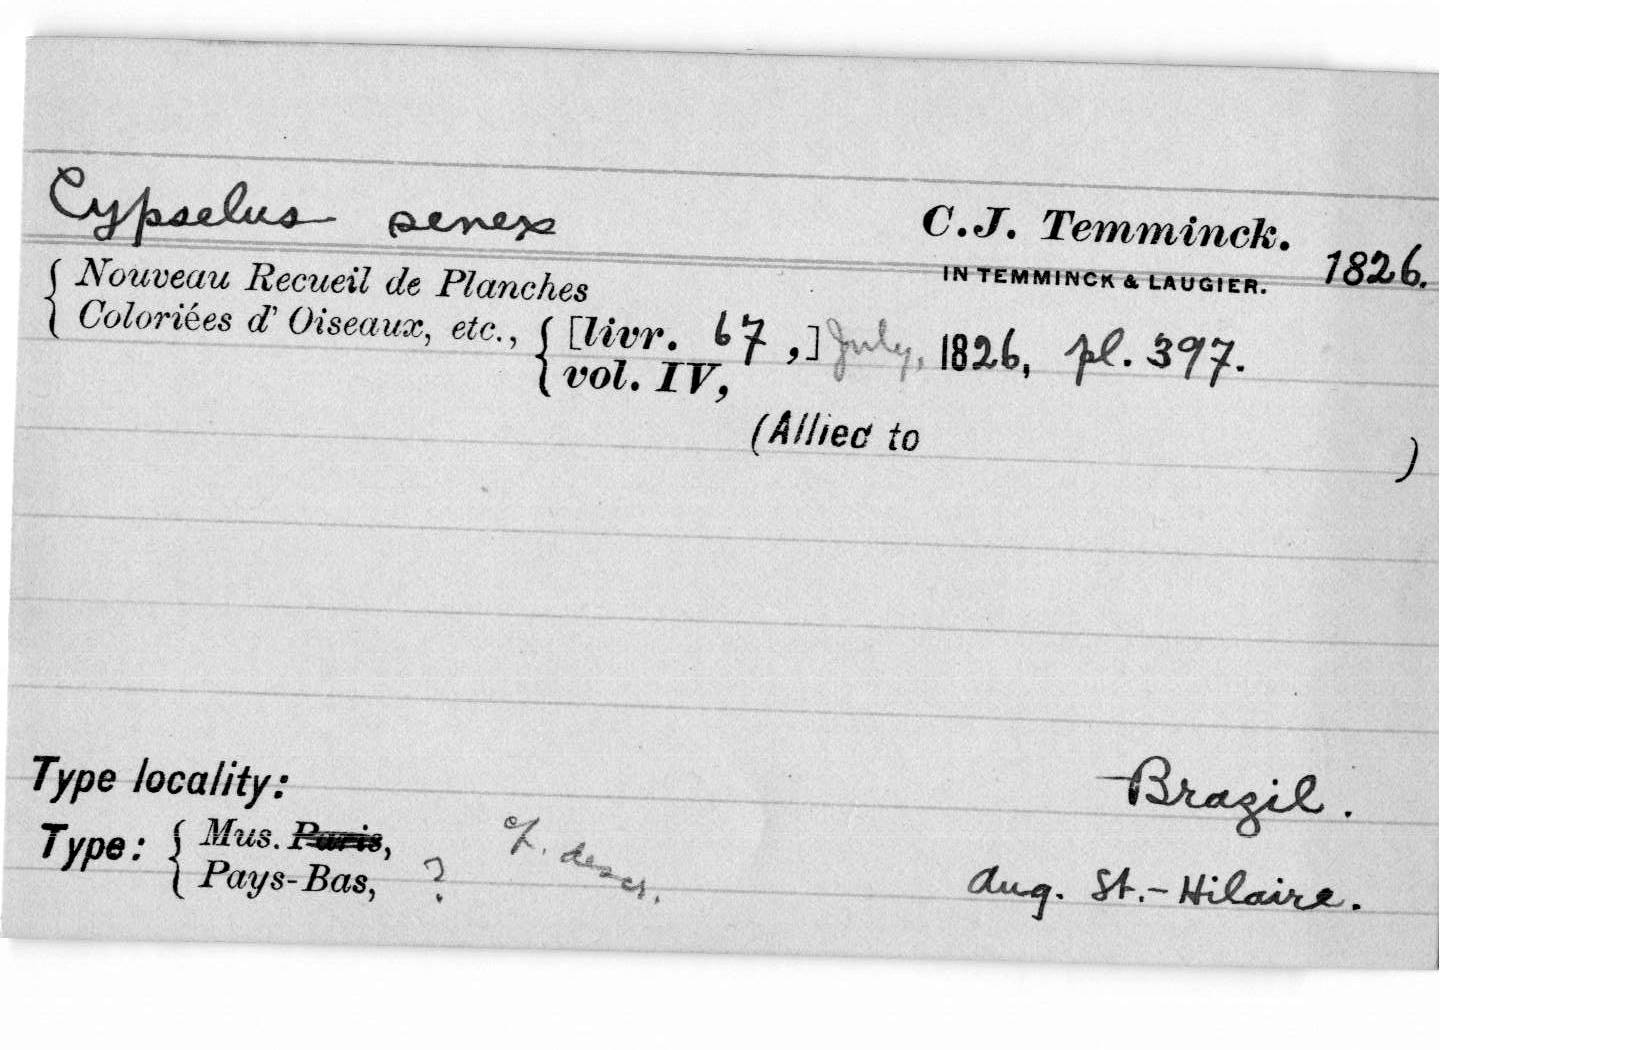 Cypselus senex
C.J. Temminck.
IN TEMMINCK & LAUGIER.
1826.
{ Nouveau Recueil de Planches
Coloriées d' Oiseaux, etc., { [livr. 67,] July, 1826, pl. 397.
vol. IV,
(Allied to )
Type locality: Brazil.
Type: { Mus. Paris,
Pays-Bas, ? cf. descr.
Aug. St.-Hilaire.